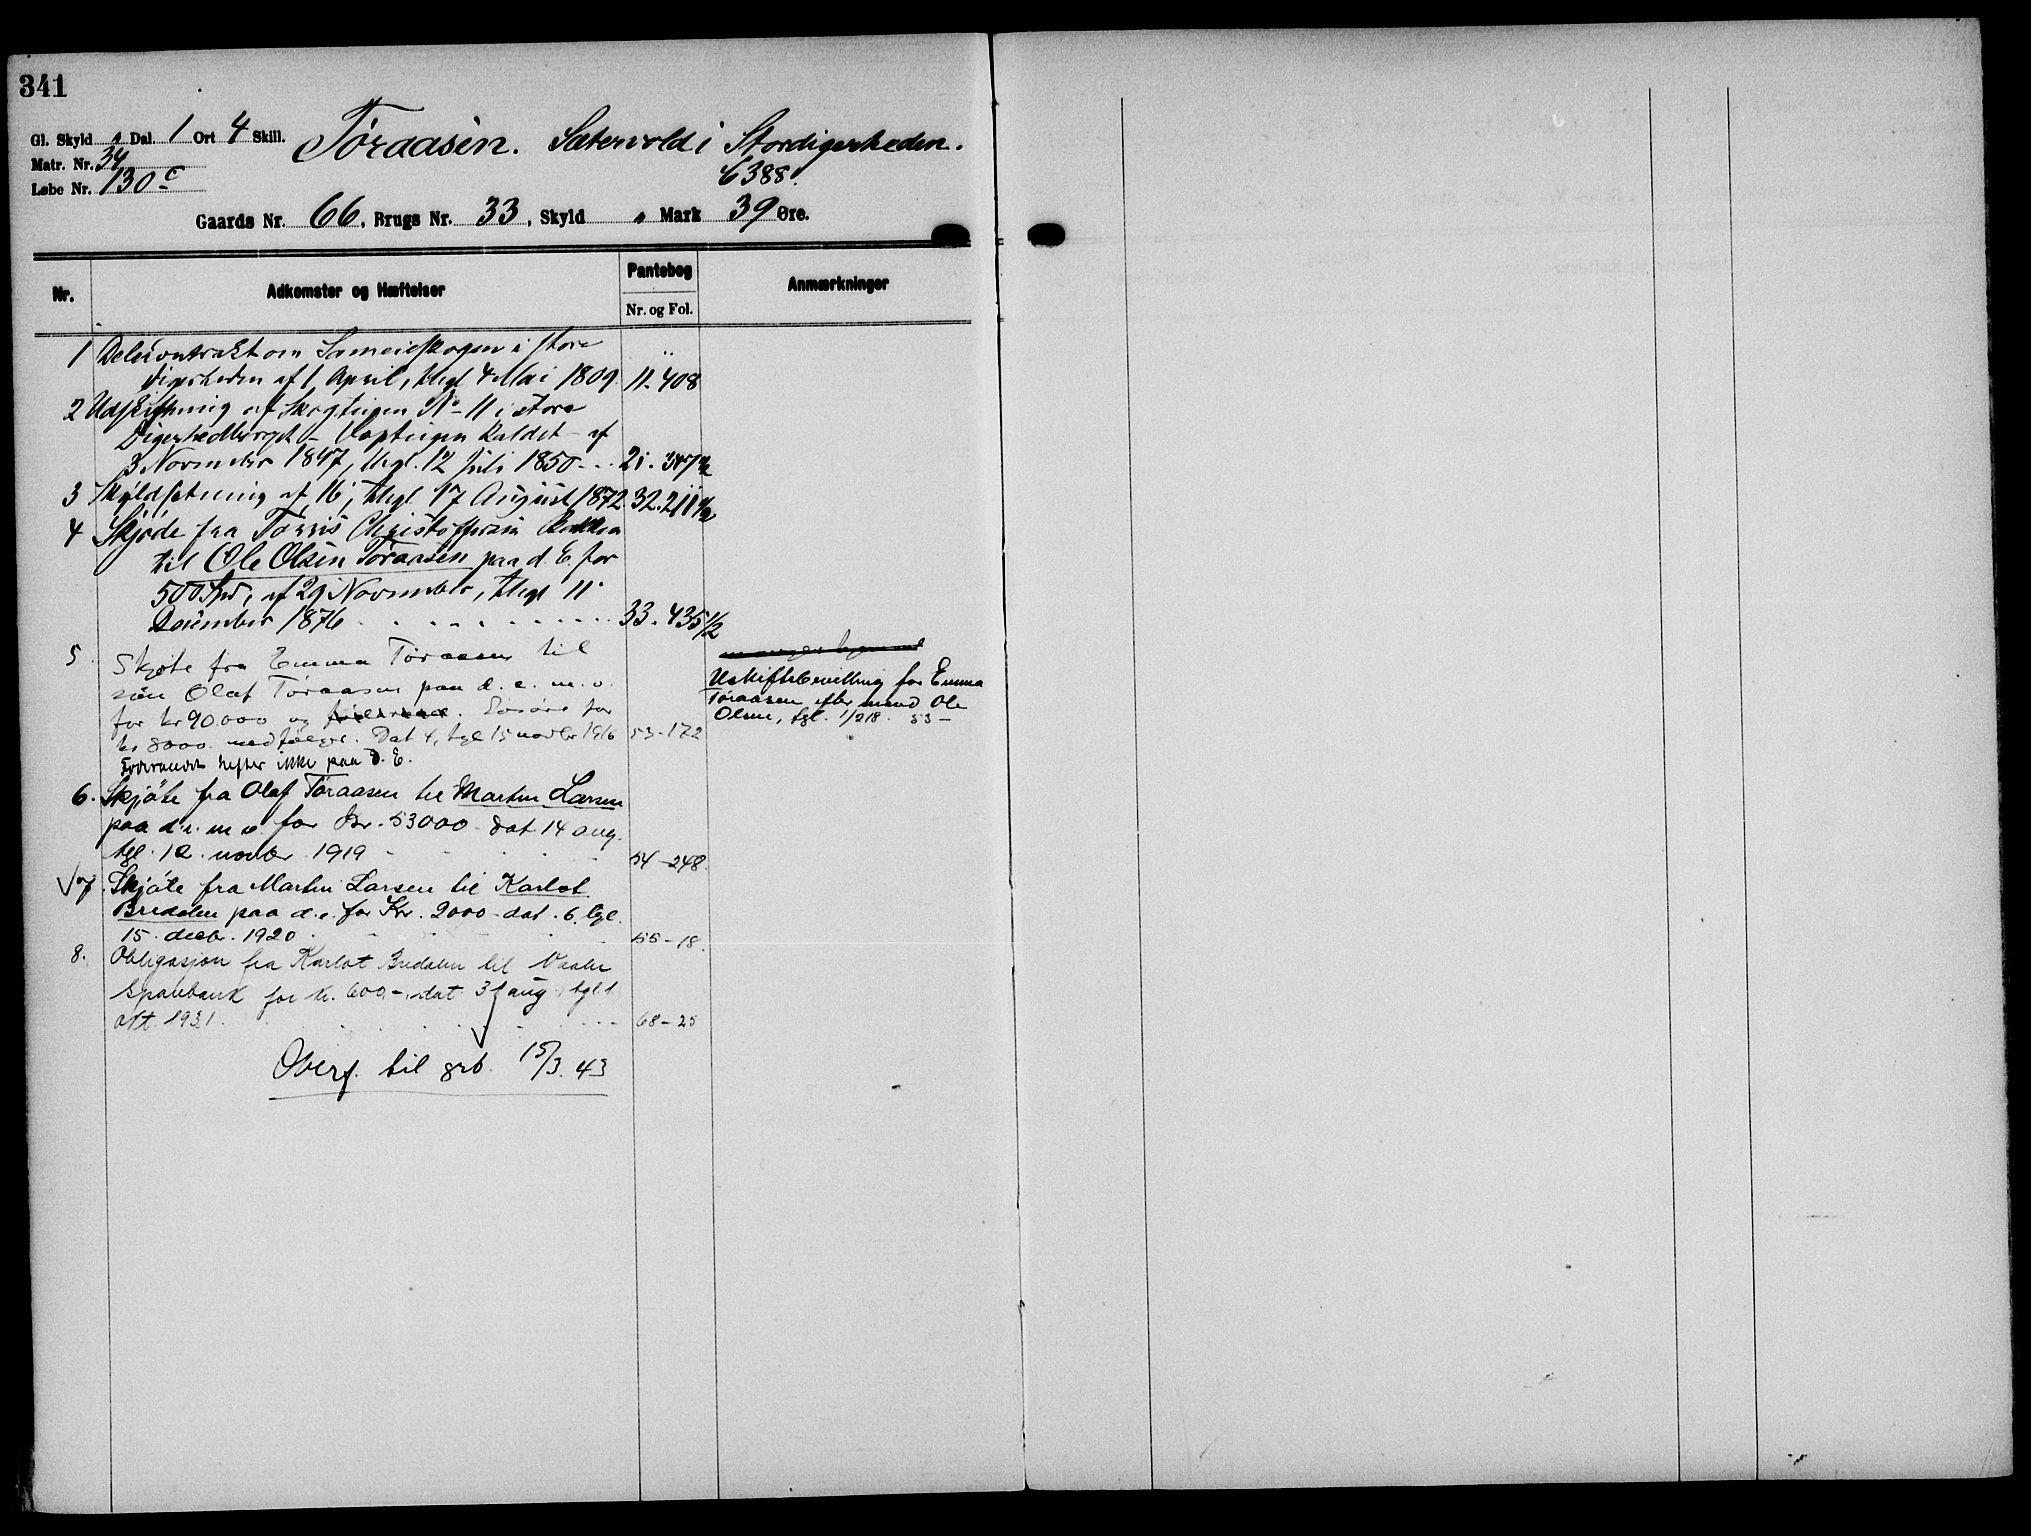 341
Gl. Skyld " Dal. 1 Ort 4 Skill. Töraasen. Sætervold i Stordigerheden.
Matr. Nr. 34
Løbe Nr. 130 c 6388.
Gaards Nr. 66, Brugs Nr. 33, Skyld " Mark 39 Øre.
Nr. Adkomster og Hæftelser Pantebog Anmærkninger
Nr. og Fol.
1 Delecontrakt om Sameieskogen i store
Digerheden af 1 April, thgl 4 Mai 1809. 11. 408
2 Udskiftning af Skogteigen No 11 i store
Digerhedberget - kaldet - af
3 November 1847, thgl. 12 Juli 1850 - - 21. 347 1/2
3 Skyldsætning af 16, thgl 17 August 1872. 32. 211 1/2
4 Skjöde fra Törris Christoffersen
til Ole Olsen Töraasen paa d. E. for
500 Spd, af 29 November, thgl 11
December 1876 33. 435 1/2
5 Skjøte fra Emma Töraasen til
søn Olaf Töraasen paa d. e. m. v.
for kr 90.000 og . Løsøre for
kr 8000 medfølger. Dat 4, tgl 15 novbr 1916 53-172
Føderaadet hefter ikke paa d. E.
Uskiftebevilling for Emma
Töraasen efter mand Ole
Olsen, tgl. 1/2 18. 53 -
6. Skjöte fra Olaf Töraasen til Martin Larsen
paa d. e. m. v. for Kr. 53000 - dat 14 aug.
tgl. 12. novbr. 1919 54-248.
√ 7. Skjöte fra Martin Larsen til Karlot
Bredalen paa d. e. for Kr. 2000 - dat. 6. tgl.
15. decbr. 1920 55-18.
8. Obligasjon fra Karlot Bredalen til Vaaler
Sparebank for kr. 600,- dat. 31 aug. tgl 1
okt. 1931. 68-25
Overf. til grb. 15/3. 43